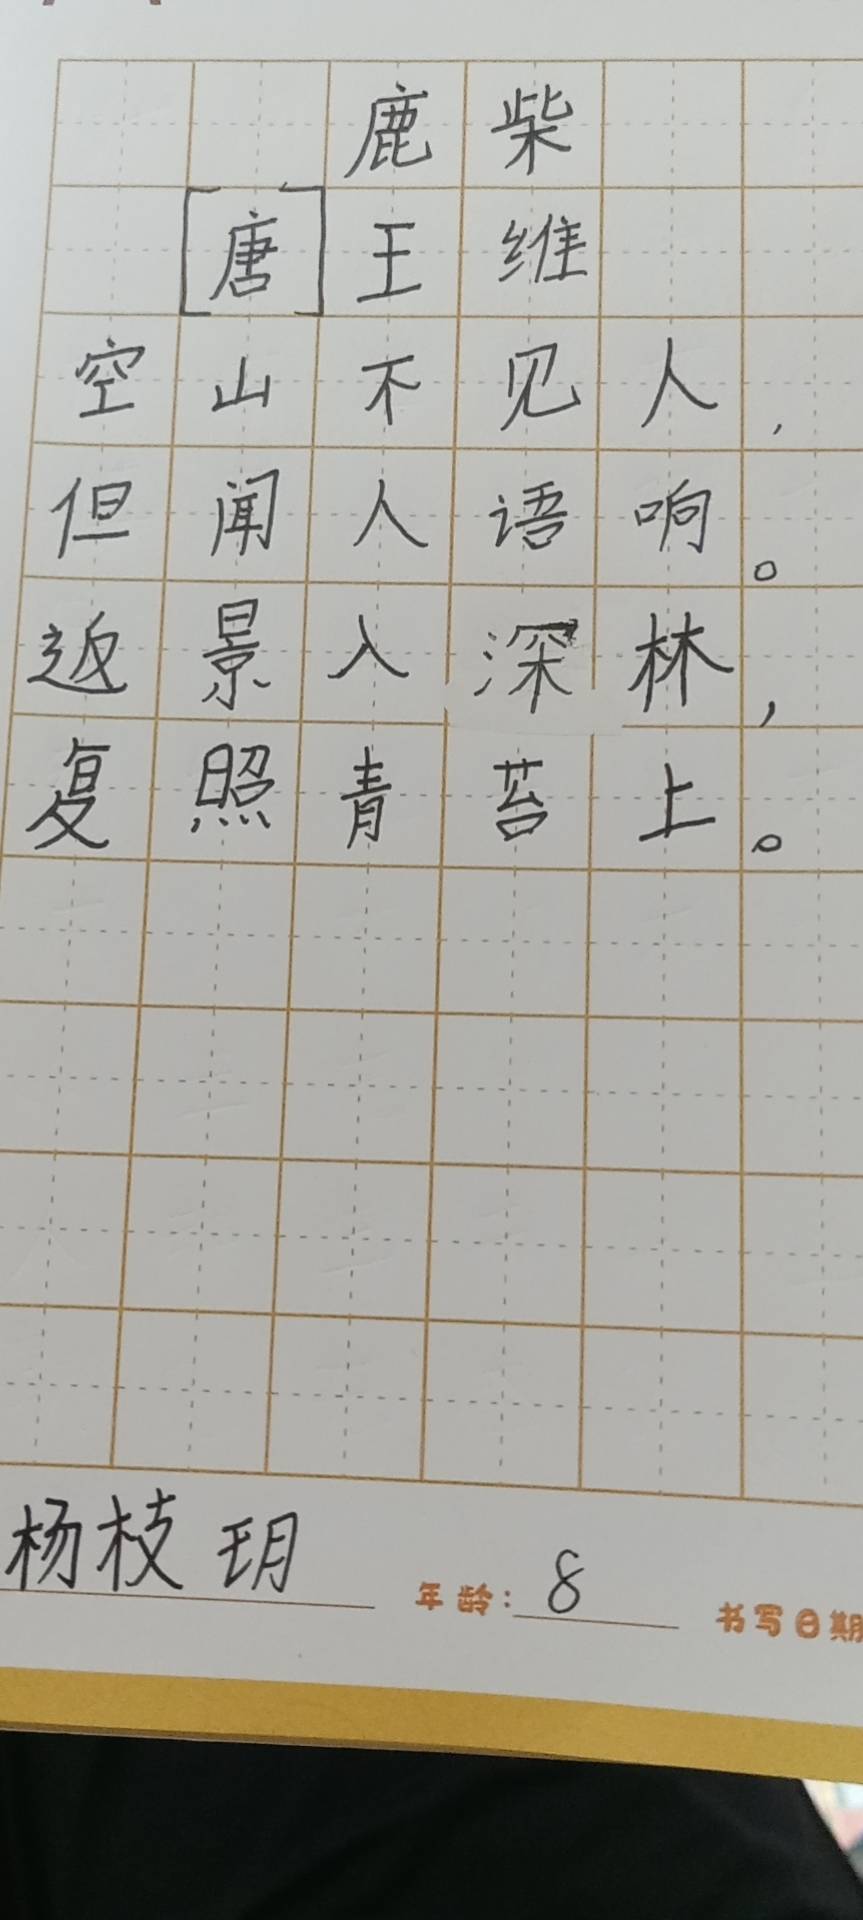 鹿柴
[唐]王维
空山不见人，
但闻人语响。
返景入深林，
复照青苔上。
杨枝玥 年龄：8 书写日期